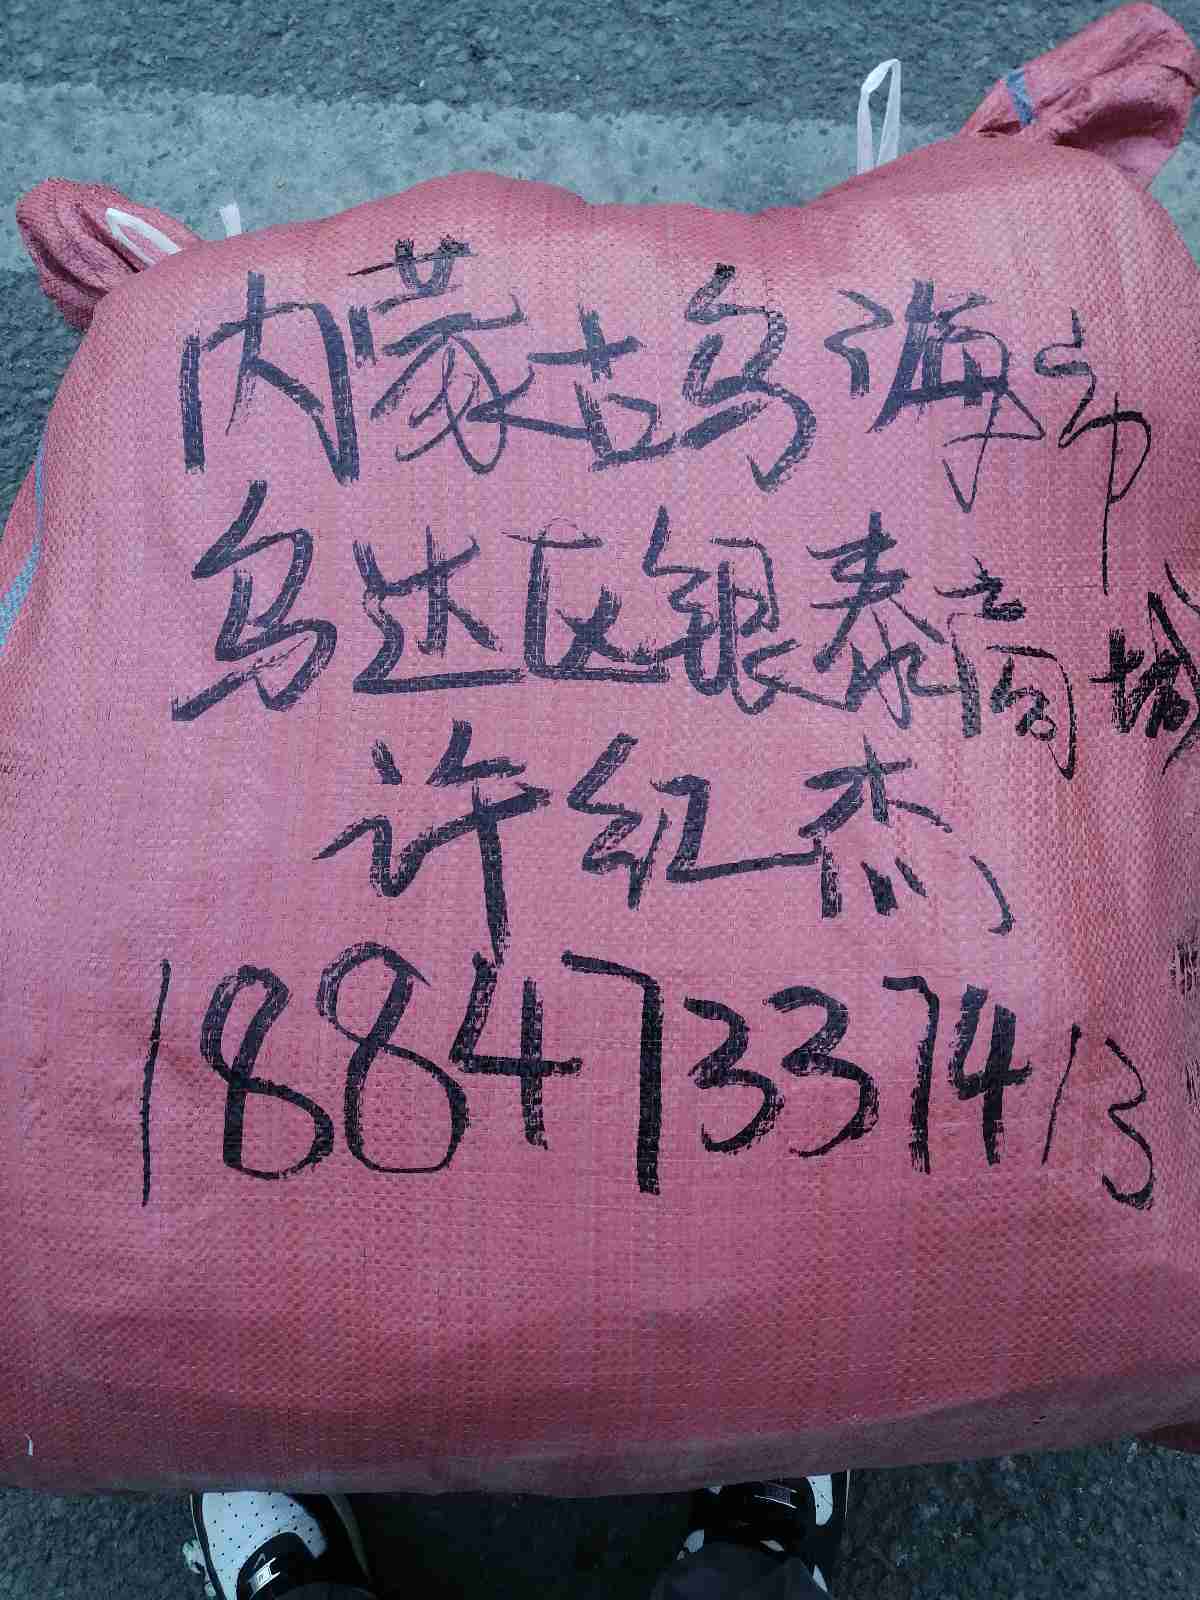 内蒙古乌海市
乌达区银泰商城
许红杰
18847337413